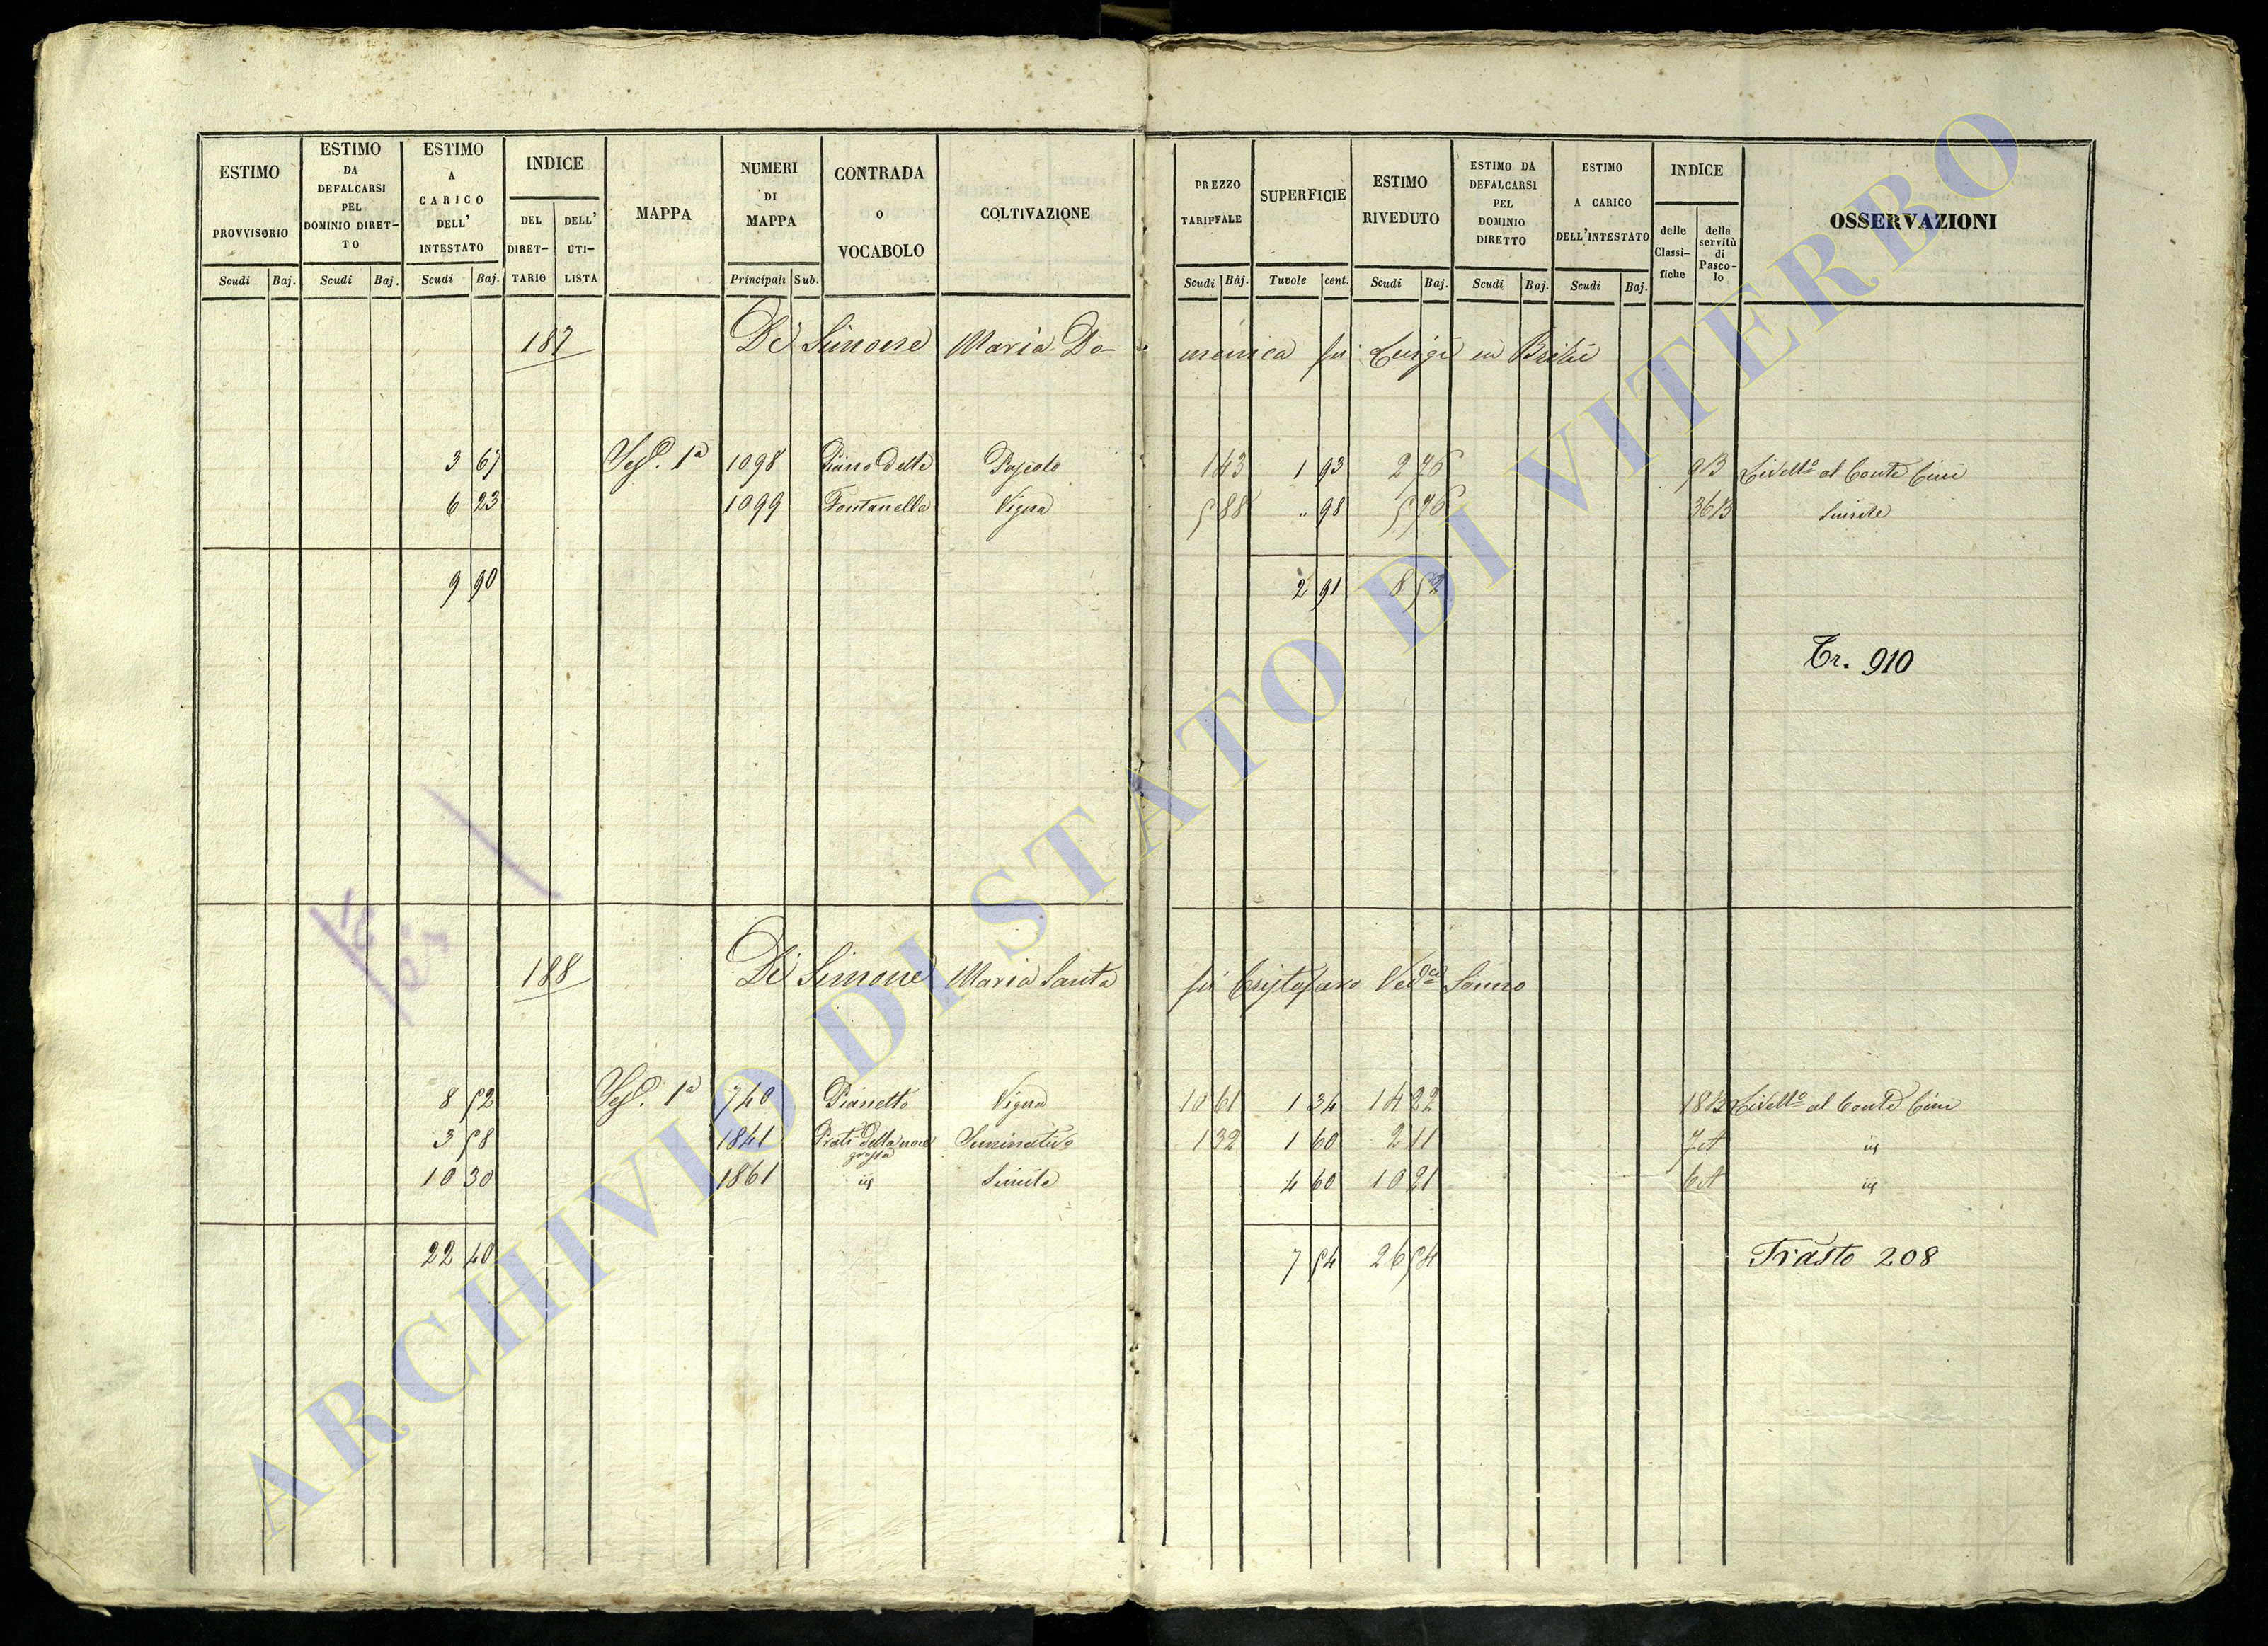 ESTIMO PROVVISORIO
ESTIMO DA DEFALCARSI PEL DOMINIO DIRET-TO
ESTIMO A CARICO DELL' INTESTATO
INDICE
DEL DIRET-TARIO
DELL' UTI-LISTA
MAPPA
NUMERI DI MAPPA
CONTRADA O VOCABOLO
COLTIVAZIONE
PREZZO TARIFFALE
SUPERFICIE
ESTIMO RIVEDUTO
ESTIMO DA DEFALCARSI PEL DOMINIO DIRETTO
ESTIMO A CARICO DELL'INTESTATO
INDICE
delle Classi-fiche
della servitù di Pasco-lo
OSSERVAZIONI
Scudi Baj. Scudi Baj. Scudi Baj. Principali Sub. Scudi Baj. Tavole cent. Scudi Baj. Scudi Baj. Scudi Baj.
187 De Simone Maria Do-menica fu Luigi in
3 67 Sez. 1a 1098 Piano delle Pascolo 1 43 1 93 2 76 9B Livello al Conte Cini
6 23 1099 Fontanelle Vigna 5 88 " 98 5 76 36B Simile
9 90 2 91 8 52
Tr. 910
188 De Simone Maria Santa fu Cristofaro Ved.
8 52 Sez. 1a 740 Pianetto Vigna 10 61 1 34 14 22 18B Livello al Conte Cini
3 58 1841 Prati della noce grossa Seminativo 1 32 1 60 2 11 7A iis
10 30 1861 iis Simile 4 60 10 21 6A iis
22 40 7 54 26 54 Trasto 208
ARCHIVIO DI STATO DI VITERBO